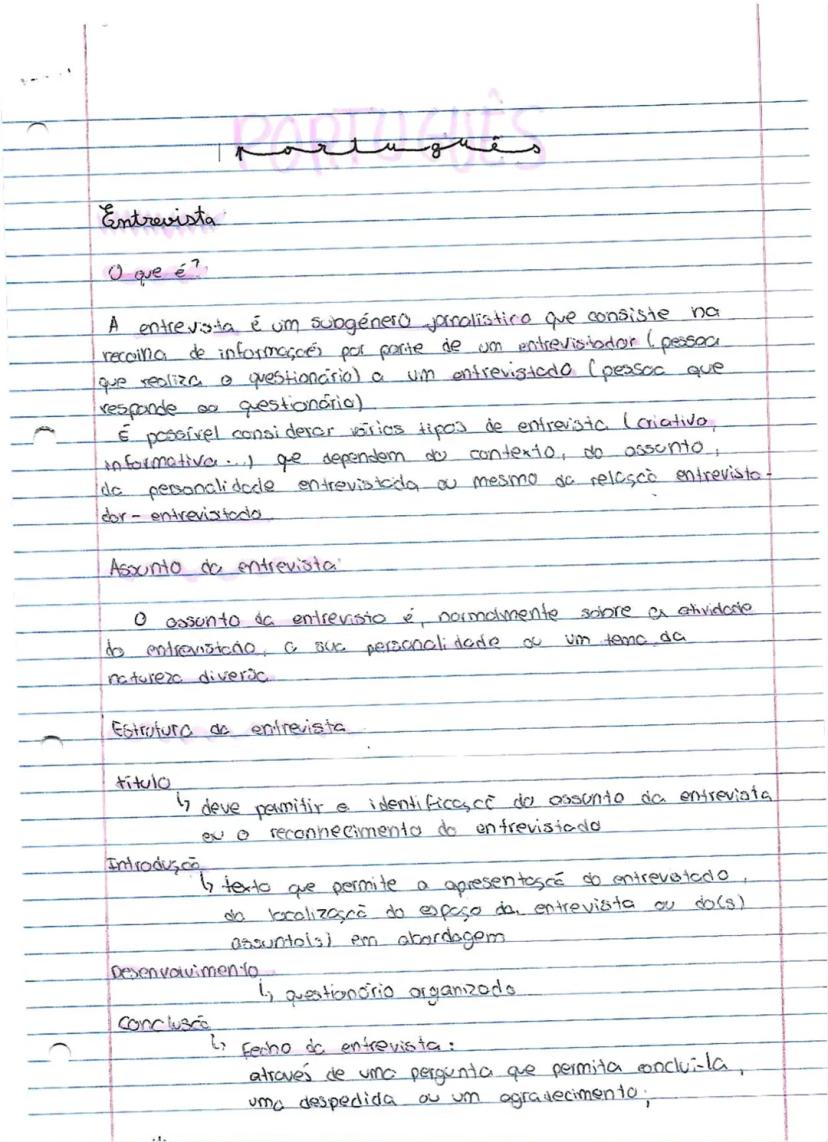 PORTUGUÊS
português
Entrevista
O que é?
A entrevista é um subgénero jornalístico que consiste na
recolha de informações por parte de um entrevistador (pessoa
que realiza o questionário) a um entrevistado (pessoa que
responde ao questionário)
É possível considerar vários tipos de entrevista (criativa,
informativa...) que dependem do contexto, do assunto,
da personalidade entrevistada ou mesmo da relação entrevista-
dor - entrevistado
Assunto da entrevista
O assunto da entrevista é, normalmente sobre a atividade
do entrevistado, a sua personalidade ou um tema da
natureza diversa
Estrutura da entrevista
título
↳ deve permitir a identificação do assunto da entrevista
ou o reconhecimento do entrevistado
Introdução
↳ texto que permite a apresentação do entrevistado,
da localização do espaço da entrevista ou do(s)
assunto(s) em abordagem
Desenvolvimento
↳ questionário organizado
Conclusão
↳ Fecho da entrevista:
através de uma pergunta que permita concluí-la,
uma despedida ou um agradecimento;